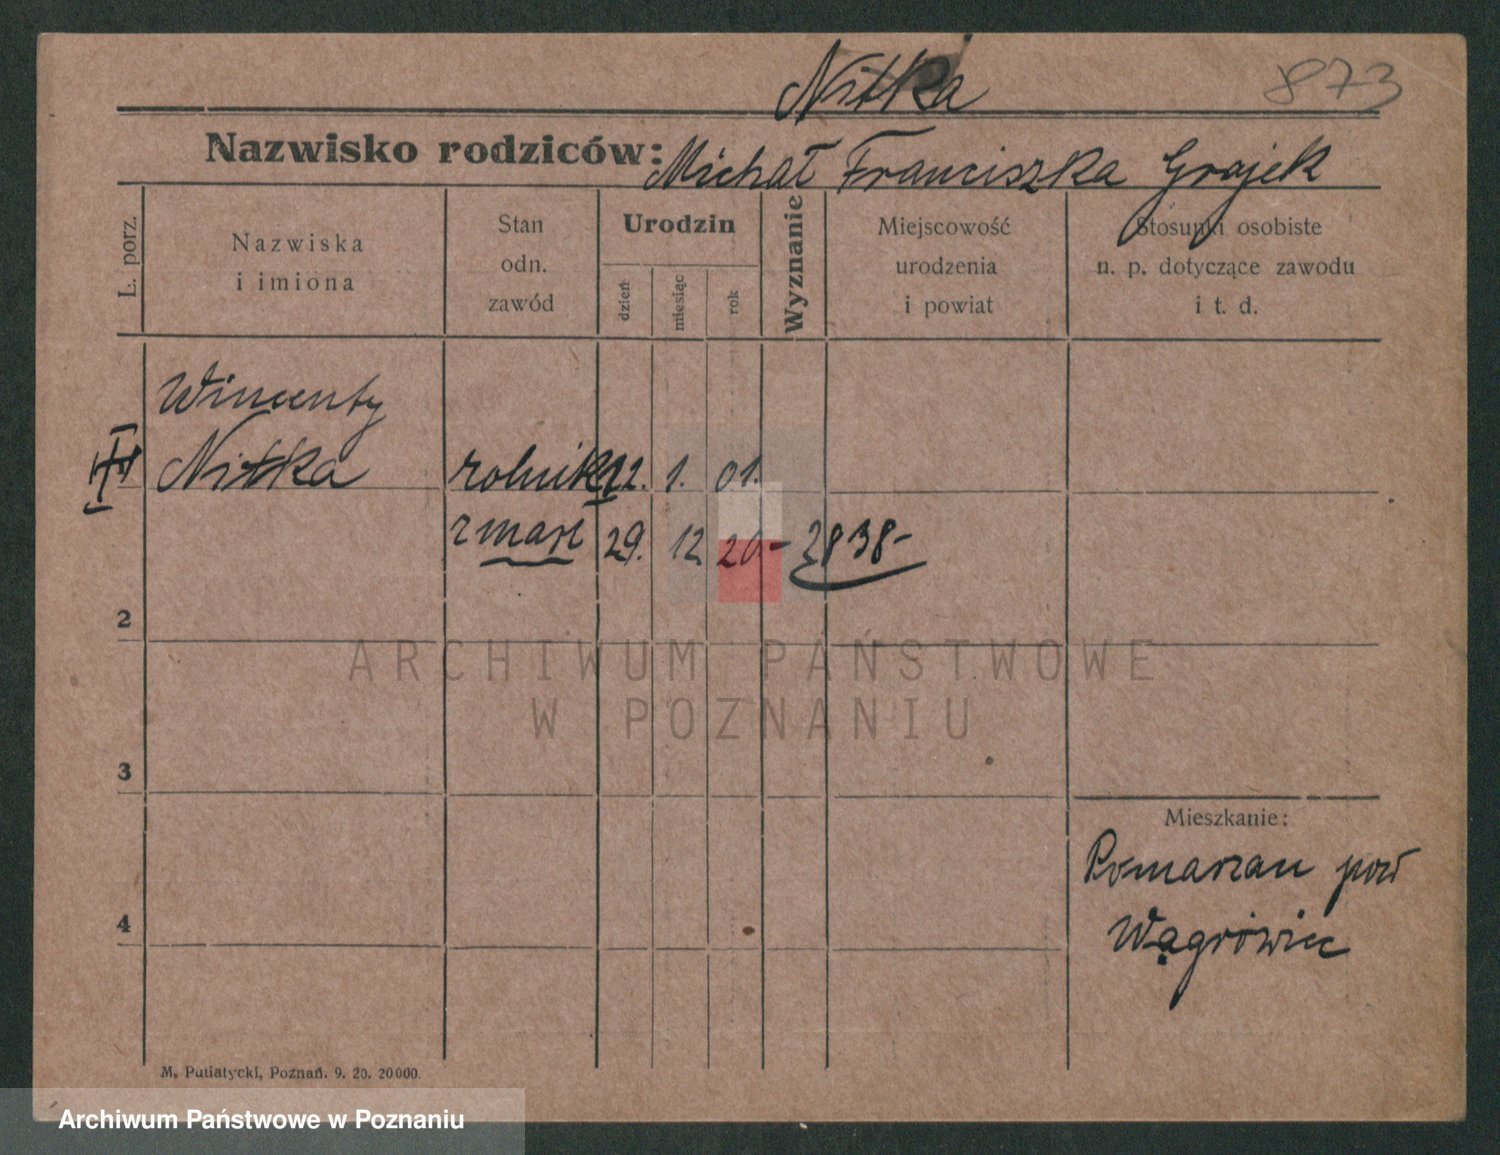 Nitka
873
Nazwisko rodziców: Michał Franciszka Grajek
L. porz.
Nazwiska
i imiona
Stan
odn.
zawód
Urodzin
dzień
miesiąc
rok
Wyznanie
Miejscowość
urodzenia
i powiat
Stosunki osobiste
n. p. dotyczące zawodu
i t. d.
Wincenty
Nitka rolnik 12. 1. 01.
zmarł 29. 12 20 - 2838-
2
3
4
Mieszkanie:
Pomarzan pow
Wągrówiec
M. Putiatycki, Poznań. 9. 20. 20000.
ARCHIWUM PAŃSTWOWE
W POZNANIU
Archiwum Państwowe w Poznaniu